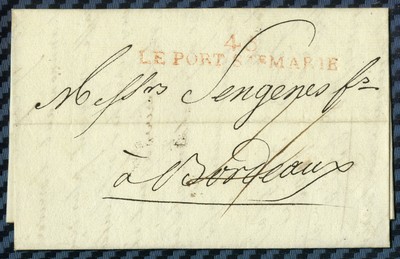 45
LE PORT STE MARIE
Messrs Sengenes fs
à Bordeaux